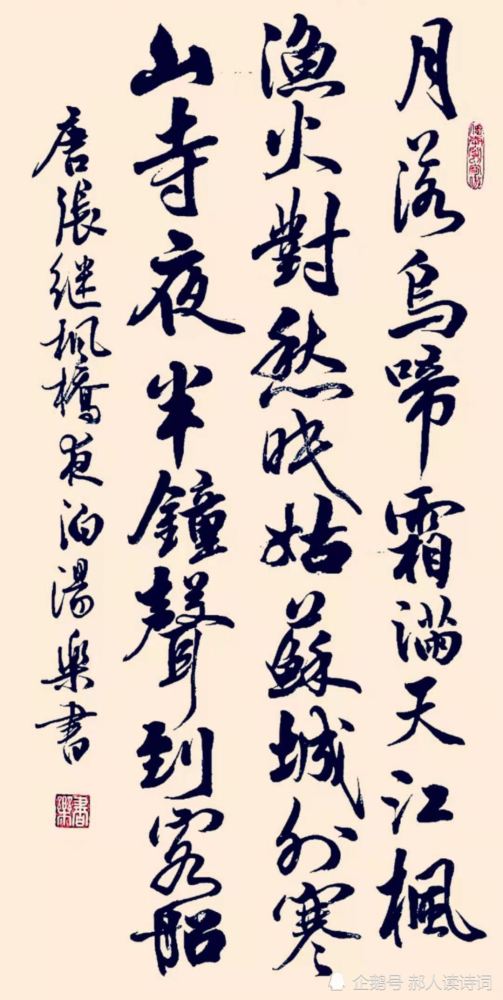 月落烏啼霜滿天江楓
漁火對愁眠姑蘇城外寒
山寺夜半鐘聲到客船
唐張继枫橋夜泊湯樂書
企鹅号 郝人读诗词